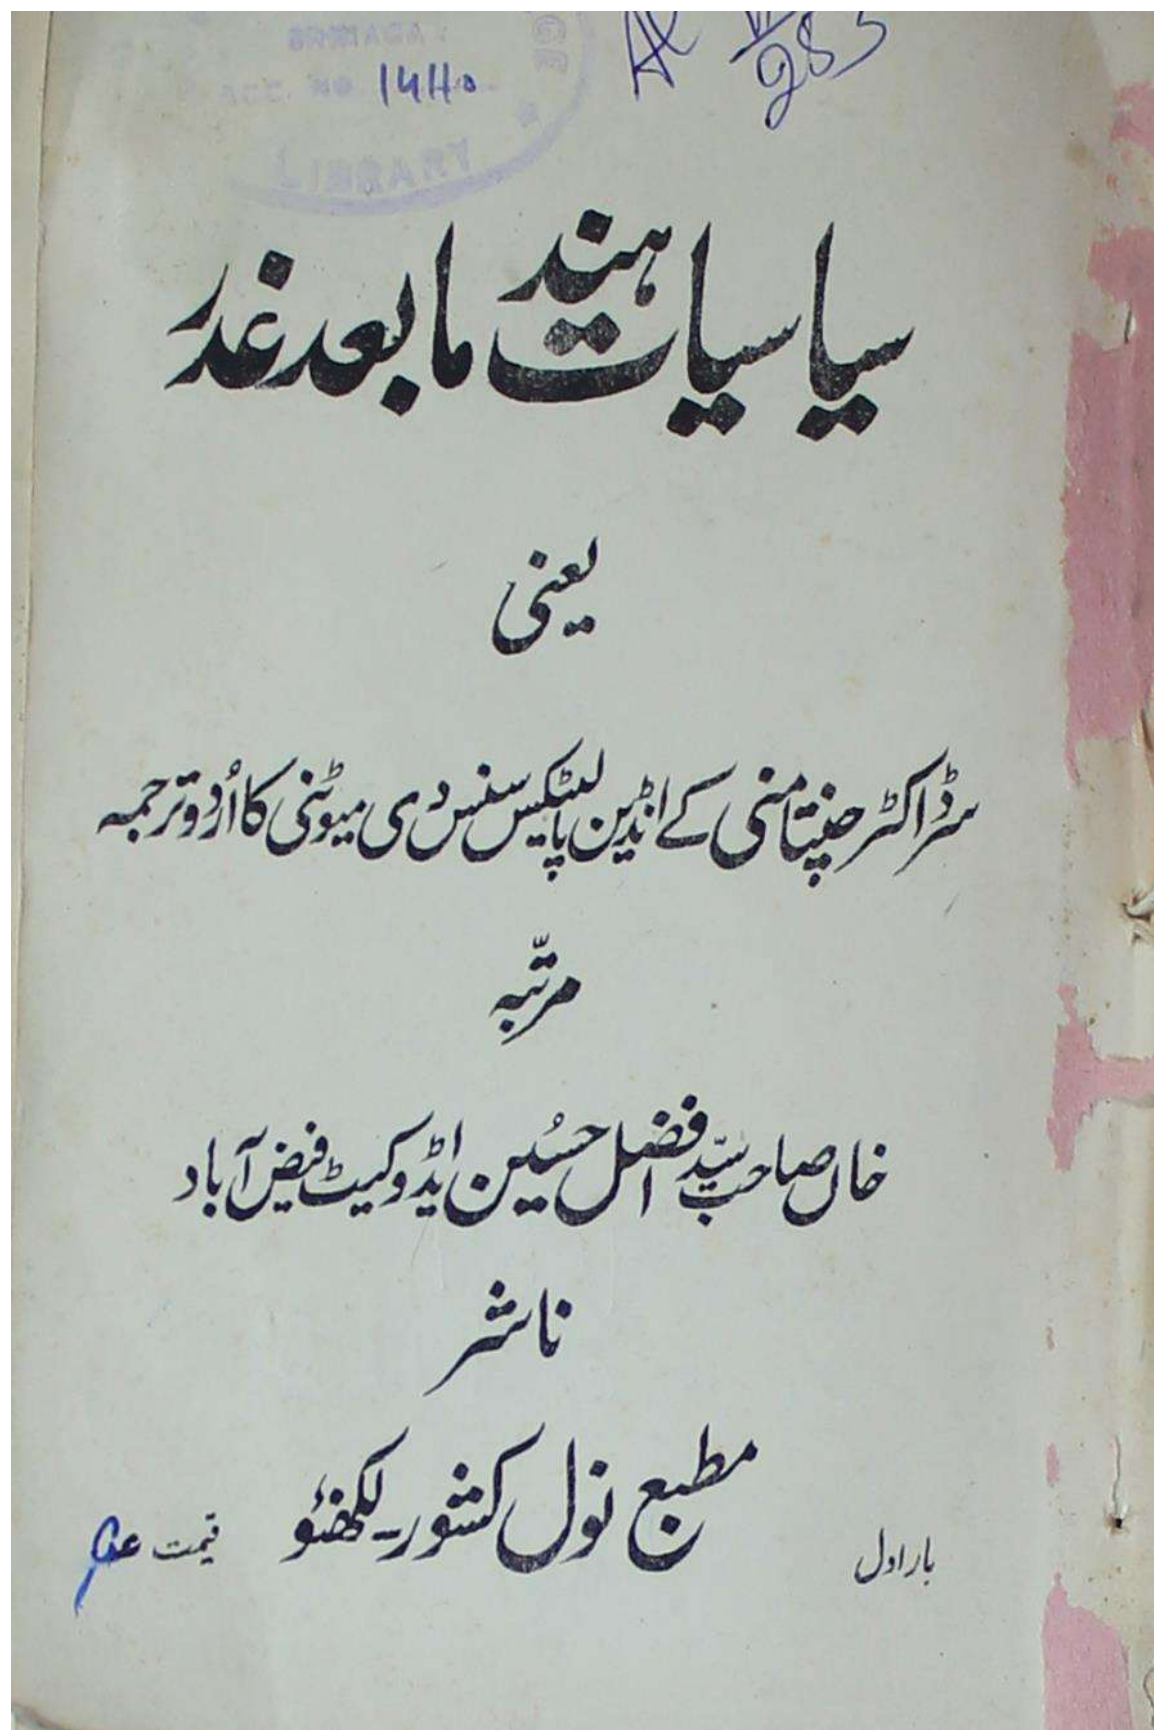 1440
LIBRARY
سیاسیات ہند ما بعد غدر
یعنی
سر ڈاکٹر چنتامنی کے انڈین پالیٹکس سنس دی میوٹنی کا اُردو ترجمہ
مرتّبہ
خاں صاحب سیّد افضل حسُین ایڈوکیٹ فیض آباد
ناشر
مطبع نول کشور۔ لکھنؤ
بار اول
قیمت